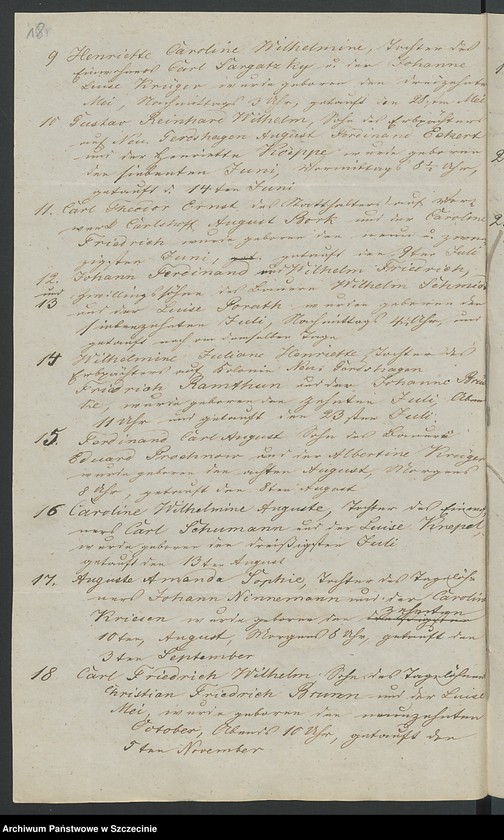 18
9 Henriette Caroline Wilhelmine, Tochter des
Einwohners Carl Sargatzky u. der Johanne
Luise Krüger wurde geboren den dreizehnten
Mai, Nachmittags 3 Uhr, getauft den 28sten Mai
10 Gustav Reinhard Wilhelm, Sohn des Erbpächters
auf Neu. Gerdshagen August Ferdinand Eckert
und der Henriette Koeppe, wurde geboren
den siebenten Juni, Vormittags 8½ Uhr,
getauft d. 14ten Juni
11. Carl Theodor Ernst des Statthalters auf Vor-
werk Carlshoff August Bork und der Caroline
Friedrich wurde geboren den neun u. zwan-
zigsten Juni, getauft den 9ten Juli
12. Johann Ferdinand und Wilhelm Friedrich,
und Zwillingssöhne des Bauern Wilhelm Schmidt
13 und der Luise Borath wurden geboren den
siebenzehnten Juli, Nachmittags 4½ Uhr, und
getauft noch an demselben Tage
14 Wilhelmine Juliane Henriette, Tochter des
Erbpächters auf Kolonie Neu Gerdshagen
Friedrich Ramthun und der Johanne
wurde geboren den zehnten Juli Abend
11 Uhr und getauft den 23sten Juli
15. Ferdinand Carl August Sohn des Bauers
Eduard und der Albertine Krüger
wurde geboren den achten August, Morgens
8 Uhr, getauft den 8ten August
16 Caroline Wilhelmine Auguste, Tochter des Einwoh-
ners Carl Schumann und der Luise Knepel,
wurde geboren den dreißigsten Juli
getauft den 13ten August
17. Auguste Amanda Sophie, Tochter des Tagelöh-
ners Johann Ninnemann und der Caroline
Kriesen wurde geboren den zehnten
10ten August, Morgens 8 Uhr, getauft den
3ten September
18 Carl Friedrich Wilhelm Sohn des Tagelöhners
Christian Friedrich Brunn und der Luise
Mei, wurde geboren den neunzehnten
October, Abends 10 Uhr, getauft den
5ten November
Archiwum Państwowe w Szczecinie